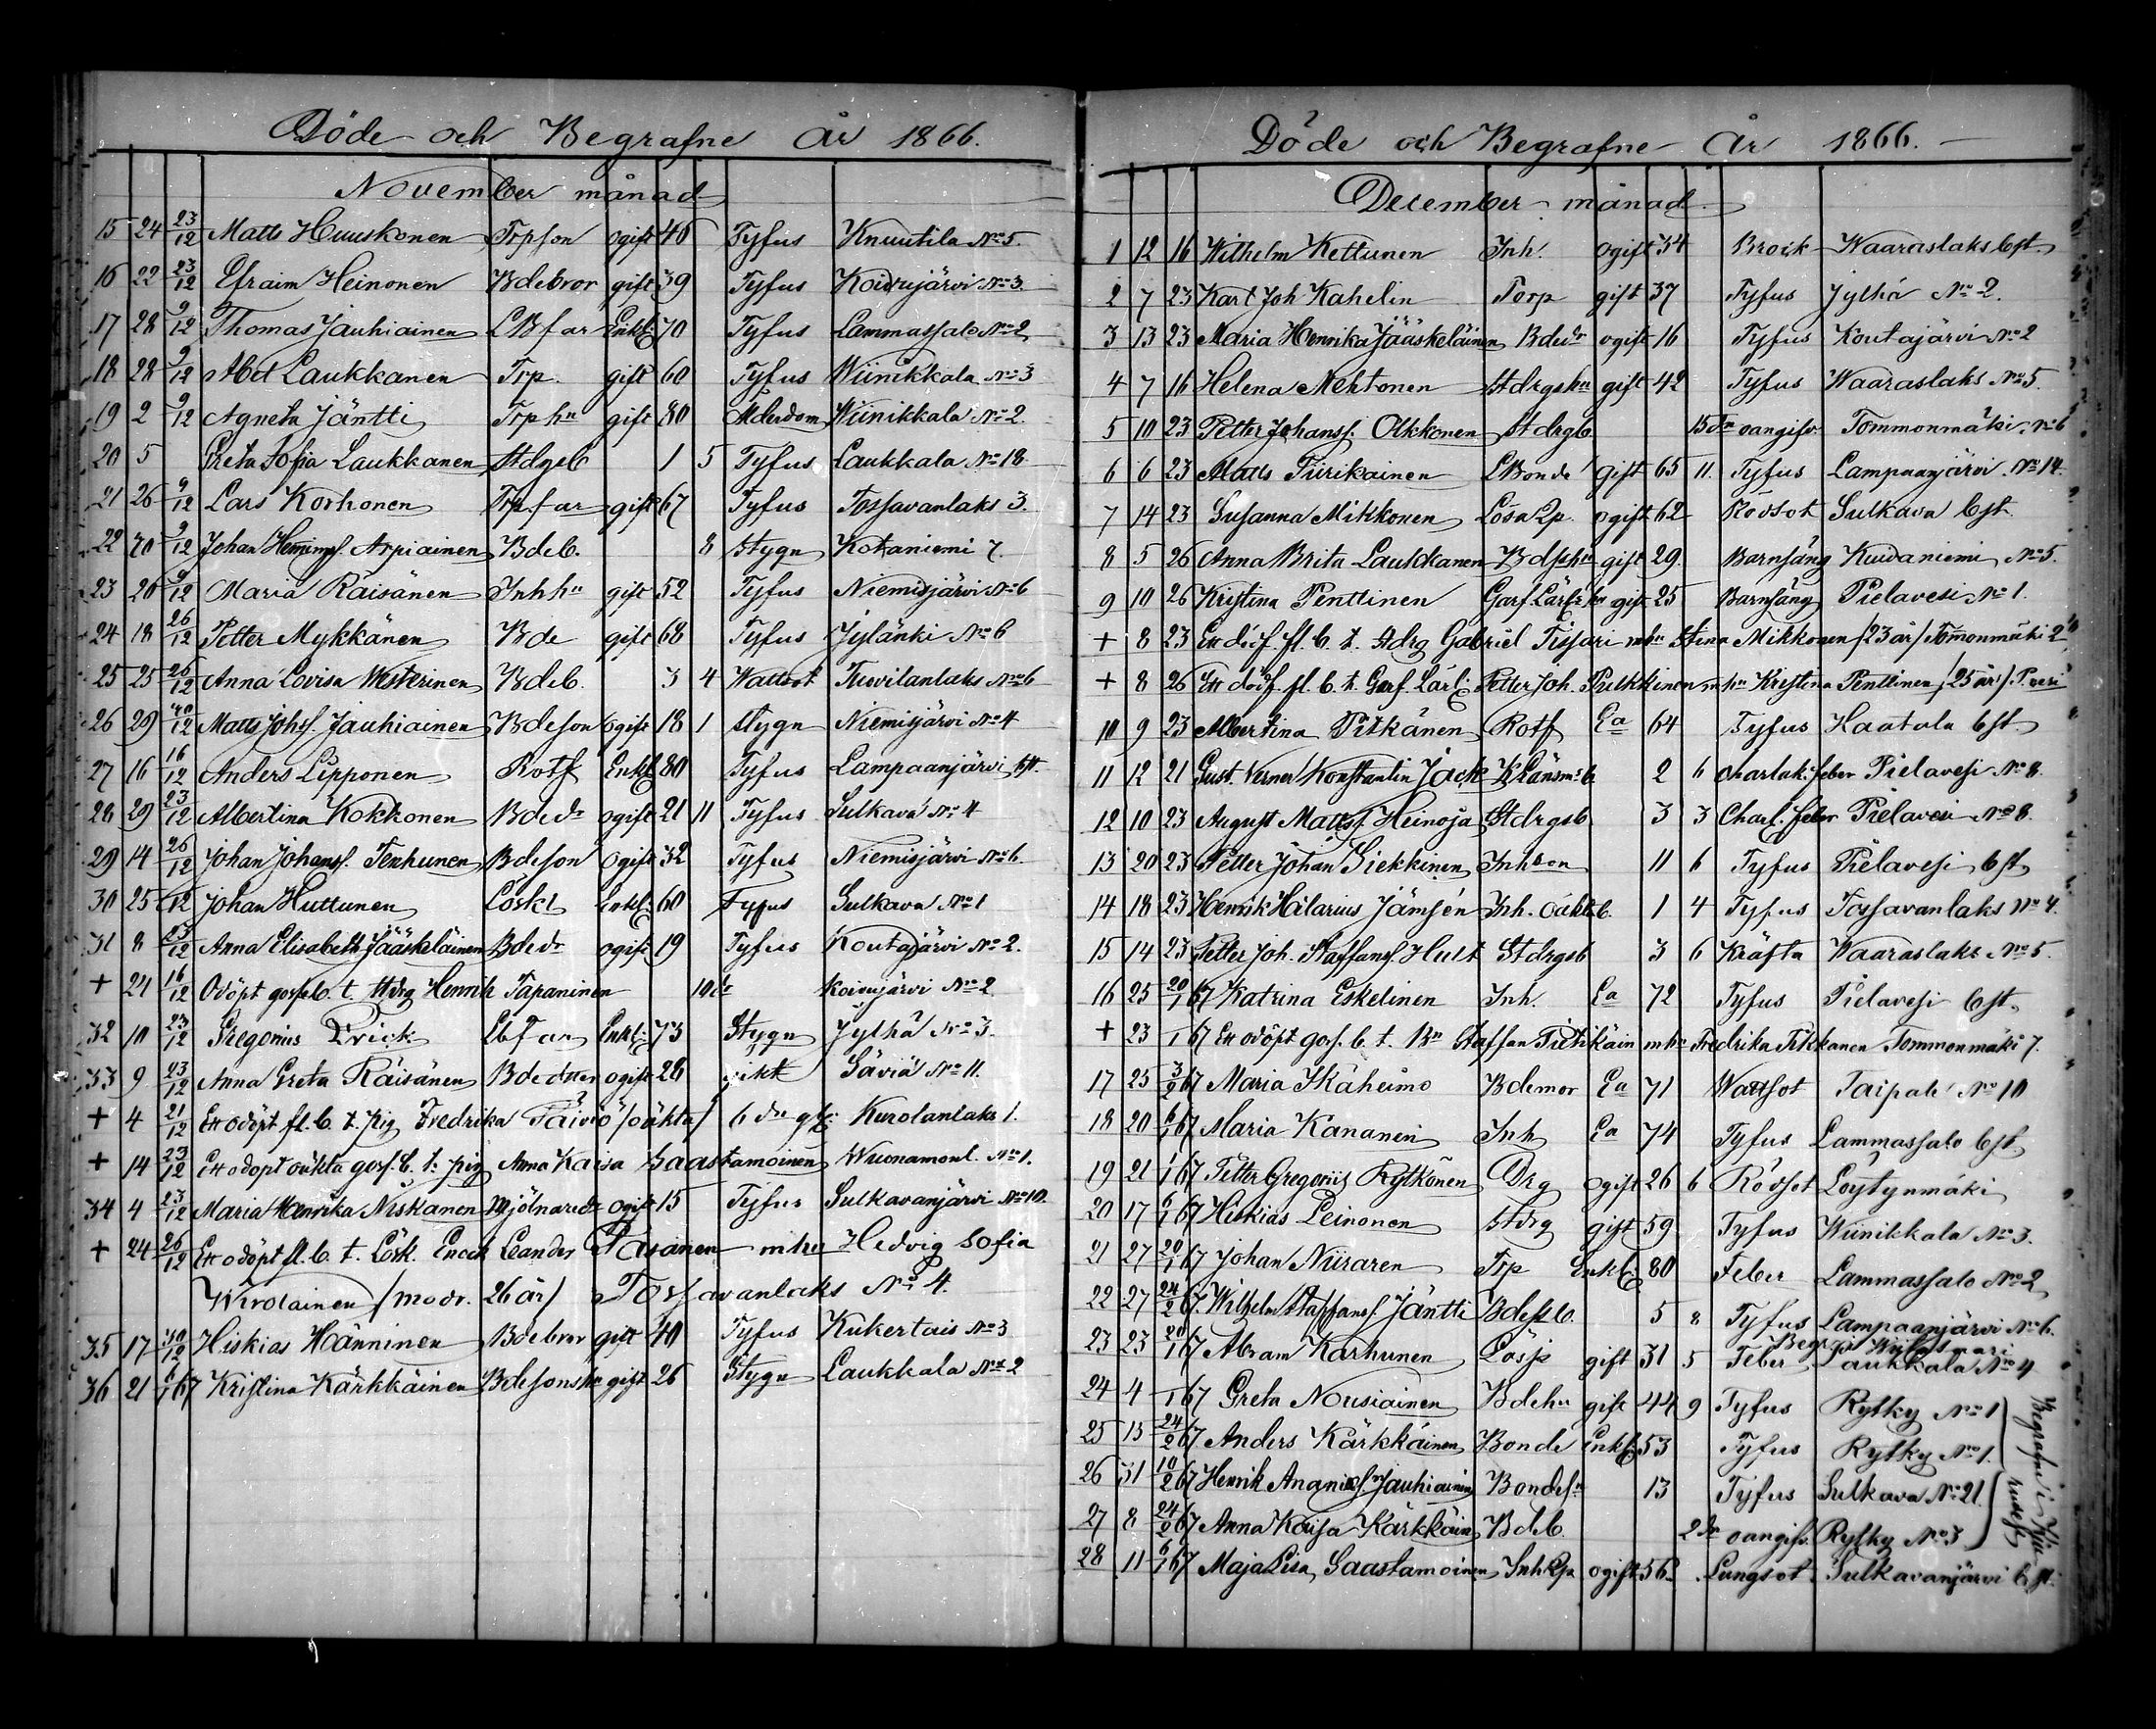 Döde och Begrafne År 1866.
November månad
15 24 23/12 Matts Huuskonen Trpson ogift 46 Tyfus Knuutila No 5.
16 22 23/12 Efraim Heinonen Bdebror gift 39 Tyfus Koivujärvi No 3
17 28 9/12 Thomas Jauhiainen LBfar Enkl: 70 Tyfus Lammassalo No 2
18 28 9/12 Abel Laukkanen Trp. gift 60 Tyfus Wiinikkala No 3
19 2 9/12 Agneta Jäntti Trp hu gift 80 Ålderdom Wiinikkala No 2.
20 5 Greta Sofia Laukkanen Stdrgsb 1 5 Tyfus Laukkala No 18
21 26 9/12 Lars Korhonen Trpfar gift 67 Tyfus Tossavanlaks 3.
22 20 9/12 Johan Hemmingss. Arpiainen Bdeb. 8 Stygn Kotaniemi 7.
23 20 9/12 Maria Räisänen Inhhu gift 52 Tyfus Niemisjärvi No 6
24 18 26/12 Petter Mykkänen Bde gift 68 Tyfus Jylänki No 6
25 25 26/12 Anna Lovisa Westerinen Bdeb. 3 4 Wattsot Tuovilanlaks No 6
26 29 /12 Matts Johs. Jauhiainen Bdeson ogift 18 1 Stygn Niemisjärvi No 4
27 16 16/12 Anders Lipponen Rotf Enkl 80 Tyfus Lampaanjärvi bst.
28 29 23/12 Albertina Kokkonen Bdedr ogift 21 11 Tyfus Sulkava No 4
29 14 26/12 Johan Johanss. Tenhunen Bdeson ogift 32 Tyfus Niemisjärvi No 6.
30 25 /12 Johan Huttunen Löskl Enkl: 60 Tyfus Sulkava No 1
31 8 23/12 Anna Elisabeth Jääskeläinen Bdedr ogift 19 Tyfus Koutajärvi No 2.
+ 21 16/12 Odöpt gosseb. t. Stdrg Henrik Tapaninen 10 dr Koivujärvi No 2
32 10 23/12 Gregorius Frick Lbfar Enkl: 73 Stygn Jylhä No 3.
33 9 23/12 Anna Greta Räisänen Bdedotter ogift 28 Jikt Säviä No 11.
+ 4 21/12 Ett odöpt fl. b. t. pig Fredrika Päiviö /oäkta/ 6 dr gl: Kurolanlaks 1.
+ 14 23/12 Ett odöpt oäkta goss. b. t. pig Anna Kaisa Saastamoinen Wuonamonl. No 1.
34 4 23/12 Maria Henrika Niskanen Mjölnaredr ogift 15 Tyfus Sulkavanjärvi No 10.
+ 24 26/12 Ett odöpt fl. b. t. Lösk. Enock Leander Pasanen m hu Hedvig Sofia
Wirolainen /modr. 26 år/ Tossavanlaks No 4.
35 17 30/12 Hiskias Hänninen Bdebror gift 40 Tyfus Kukertais No 3
36 21 6/1 67 Kristina Kärkkäinen Bdesonshu gift 26 Stygn Laukkala No 2
Döde och Begrafne År 1866.
December månad
1 12 16 Wilhelm Kettunen Inh. ogift 34 Bråck Waaraslaks bst.
2 7 23 Karl Joh Kahelin Torp gift 37 Tyfus Jylhä No 2.
3 13 23 Maria Henrika Jääskeläinen Bdedr ogift 16 Tyfus Koutajärvi No 2
4 7 16 Helena Mehtonen Stdrgshu gift 42 Tyfus Waaraslaks No 5.
5 10 23 Petter Johanss. Olkkonen Stdrgb 15 dr oangifv. Tommonmäki No 6
6 6 23 Matts Tiirikainen LBonde gift 65 11. Tyfus Lampaanjärvi No 14.
7 14 23 Susanna Mikkonen Lösa Qp. ogift 62 Rödsot Sulkava bst.
8 5 26 Anna Brita Laukkanen Bdshu gift 29. Barnsäng Kuivaniemi No 5.
9 10 26 Kristina Penttinen Garf.Lärl:s hu gift 25 Barnsäng Pielavesi No 1.
+ 8 23 Ett dödf. fl. b. t. Stdrg Gabriel Tissari m hu Stina Mikkonen /23 år/ Tommonmäki 2
+ 8 26 Ett dödf. fl. b. t. Garf. Lärl: Petter Joh. Pulkkinen m hu Kristina Penttinen /25 år/ P.vesi
10 9 23 Albertina Pitkänen Rotf Ea 64 Tyfus Haatala bst.
11 12 21 Gust. Verner Konstantin Jack KLänsm:b 2 6 Charlak: feber Pielavesi No 8.
12 10 23 August Mattss. Heinoja Stdrgsb 3 3 Charl. feber Pielavesi No 8.
13 20 23 Petter Johan Siekkinen Inhson 11 6 Tyfus Pielavesi bst
14 18 23 Henrik Hilarius Jämsén Inh. oäkt b. 1 4 Tyfus Tossavanlaks No 4.
15 14 23 Petter Joh. Staffanss. Hult Stdrgsb 3 6 Kräfta Waaraslaks No 5.
16 25 20/1 67 Katrina Eskelinen Inh. Ea 72 Tyfus Pielavesi bst.
+ 23 /1 67 Ett odöpt goss. b. t. Bn Staffan Tiitikäin m hu Fredrika Tikkanen Tommonmäki 7.
17 25 3/2 67 Maria Ikäheimo Bdemor Ea 71 Wattsot Taipale No 10
18 20 6/1 67 Maria Kananen Inh Ea 74 Tyfus Lammassalo bst.
19 21 /1 67 Petter Gregorius Rytkönen Drg ogift 26 6 Rödsot Löytynmäki
20 17 6/1 67 Hiskias Leinonen Stdrg gift 59 Tyfus Wiinikkala No 3.
21 27 20/1 67 Johan Niiraren Trp Enkl 80 Feber Lammassalo No 2
22 27 24/2 67 Wilhelm Staffanss. Jäntti Bdessb. 5 8 Tyfus Lampaanjärvi No 6.
23 23 20/1 67 Abram Karhunen Lösp gift 31 5 Feber Laukkala No 4
24 4 /1 67 Greta Nousiainen Bdehu gift 44 9 Tyfus Rytky No 1
25 13 24/2 67 Anders Kärkkäinen Bonde Enkl: 53 Tyfus Rytky No 1.
26 31 10/2 67 Henrik Ananias Jauhiainen Bondesn 13 Tyfus Sulkava No 21
27 8 24/2 67 Anna Kaisa Kärkkäin Bdeb. 2 dr oangifv. Rytky No 3
28 11 6/1 67 Maja Lisa Saastamoinen Inh Qp ogift 56 Lungsot Sulkavanjärvi bst.
Begrafne i